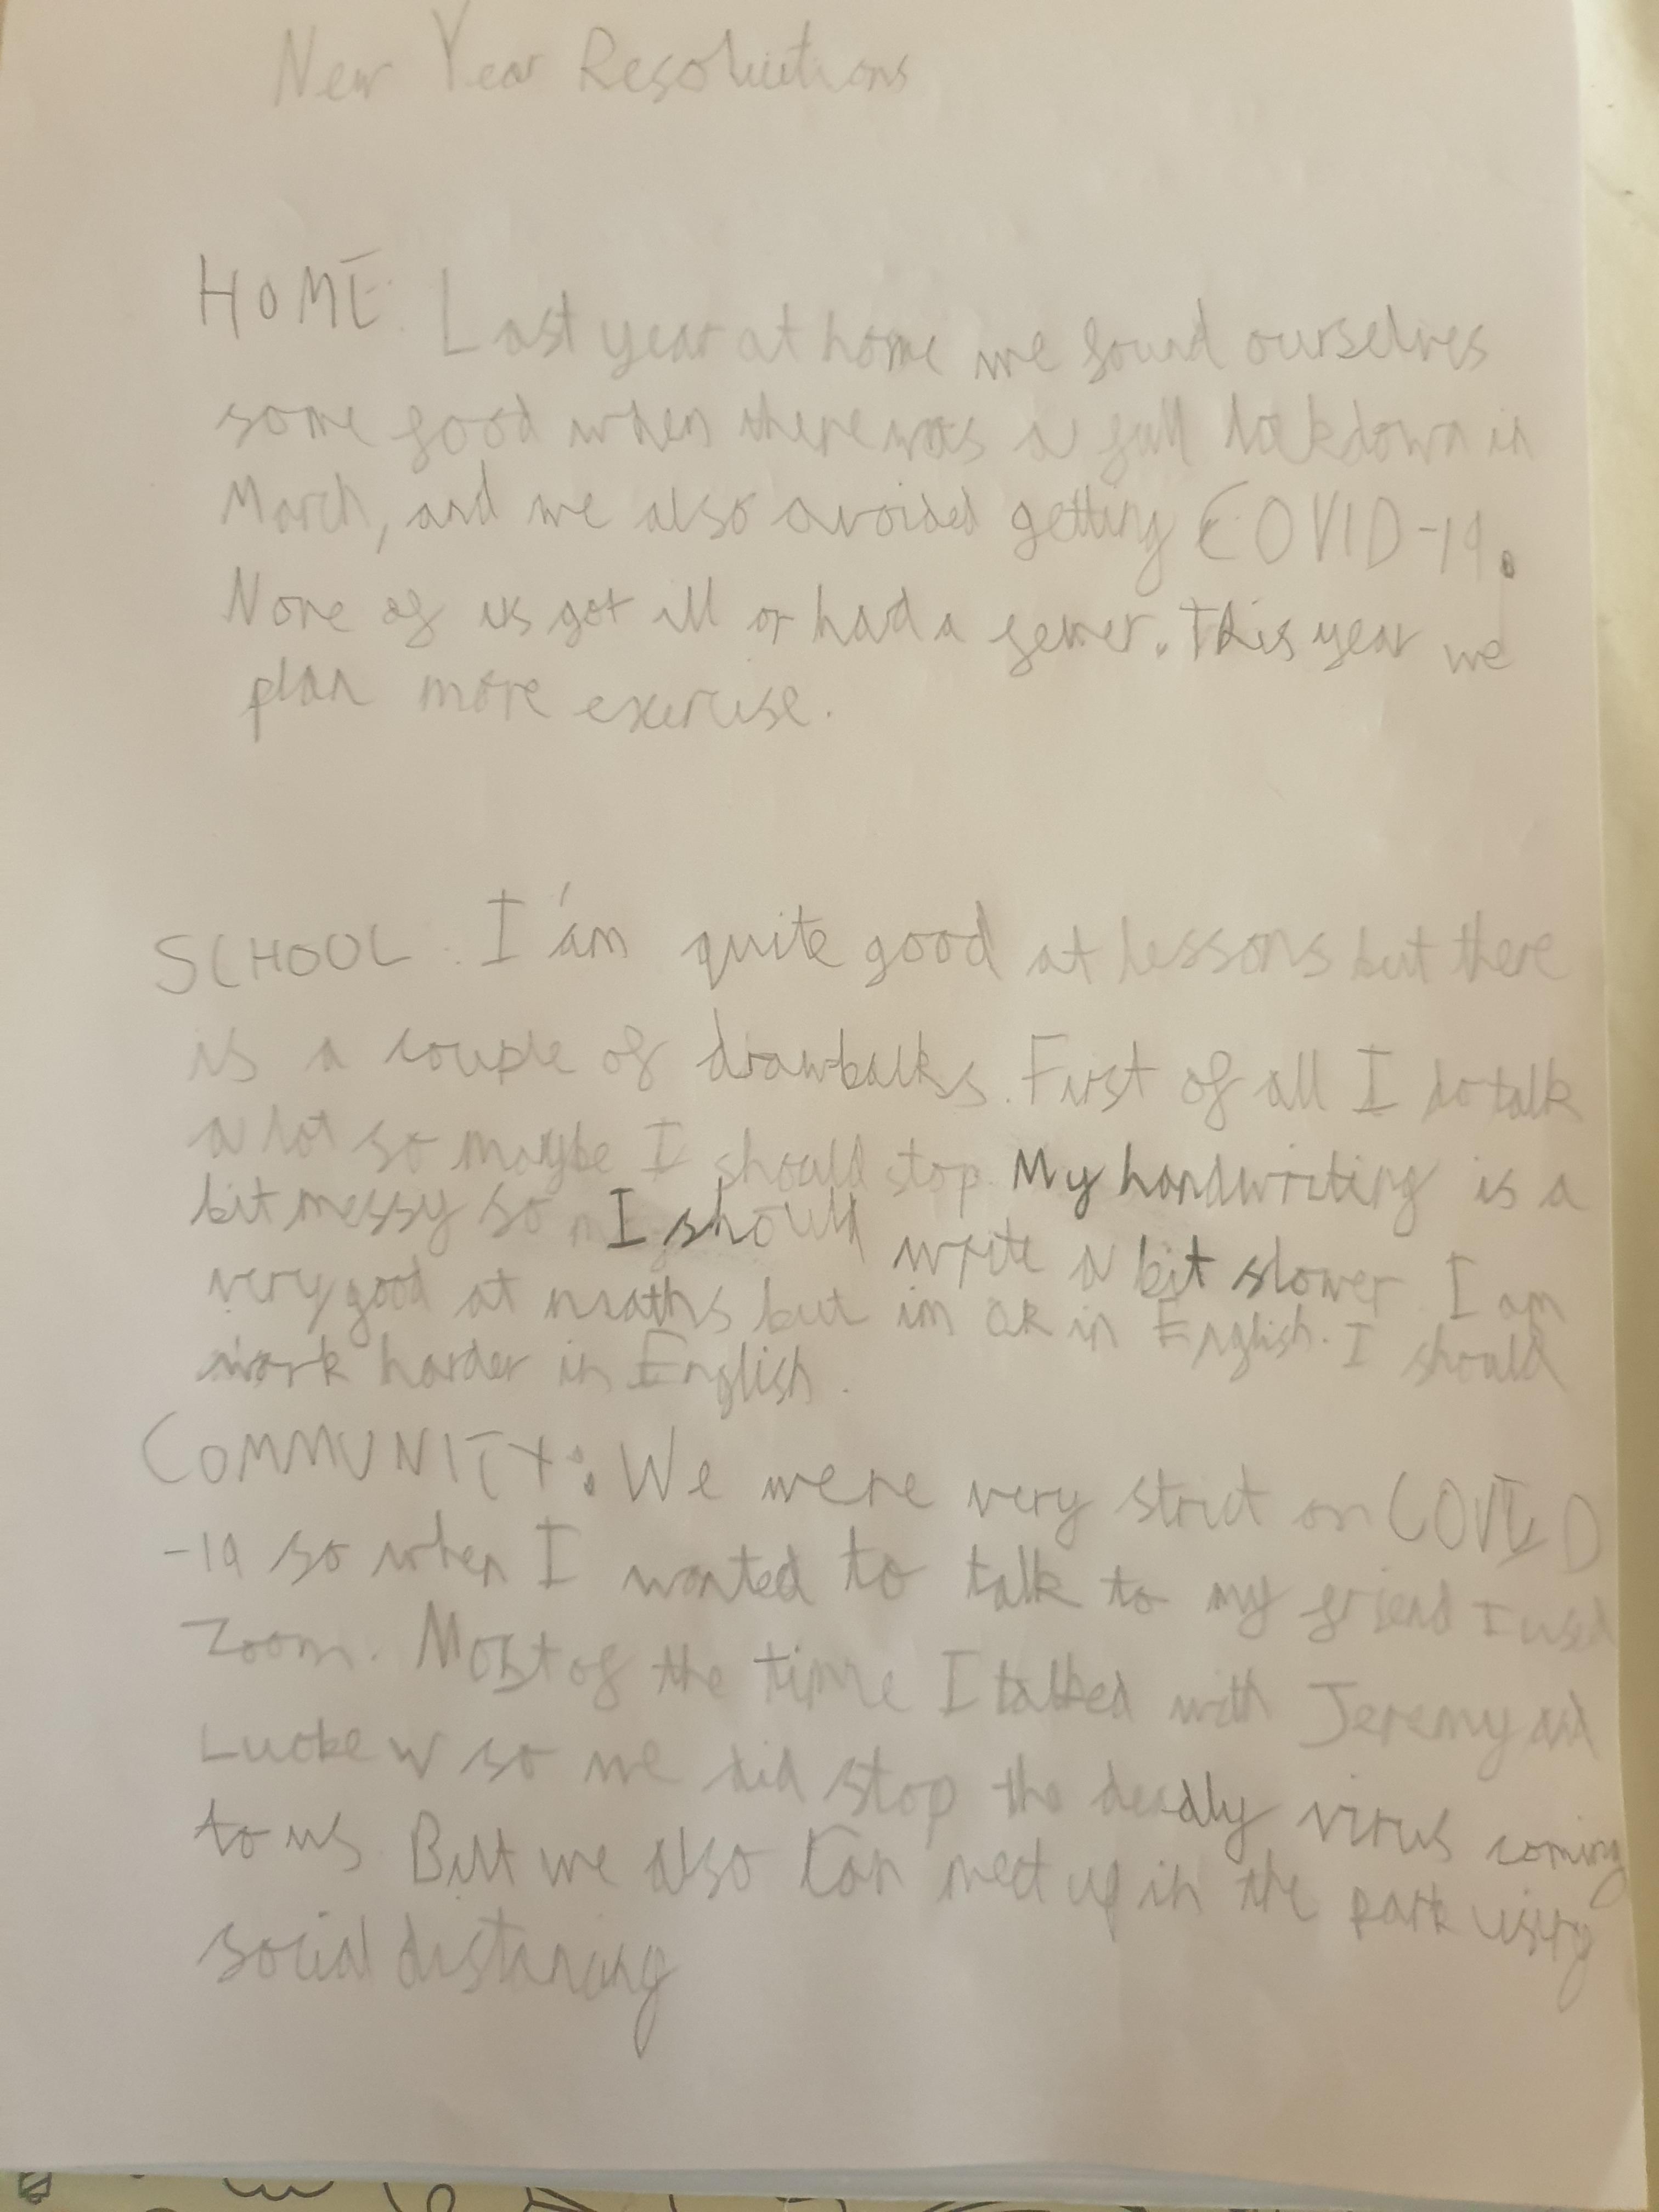 New Year Resolutions
HOME: Last year at home we found ourselves
some food when there was a full lockdown in
March, and we also avoided getting COVID-19.
None of us got ill or had a fewer. This year we
plan more exercise.
SCHOOL: I'am quite good at lessons but there
is a couple of drawbacks. First of all I do talk
a lot so maybe I should stop. My handwriting is a
bit messy so I should write a bit slower. I am
very good at maths but im OK in English. I should
work harder in English.
COMMUNITY: We were very strict on COVID
-19 so when I wanted to talk to my friend I used
Zoom. Most of the time I talked with Jeremy and
W so we did stop the deadly virus coming
to us. But we also can meet up in the park using
social distancing